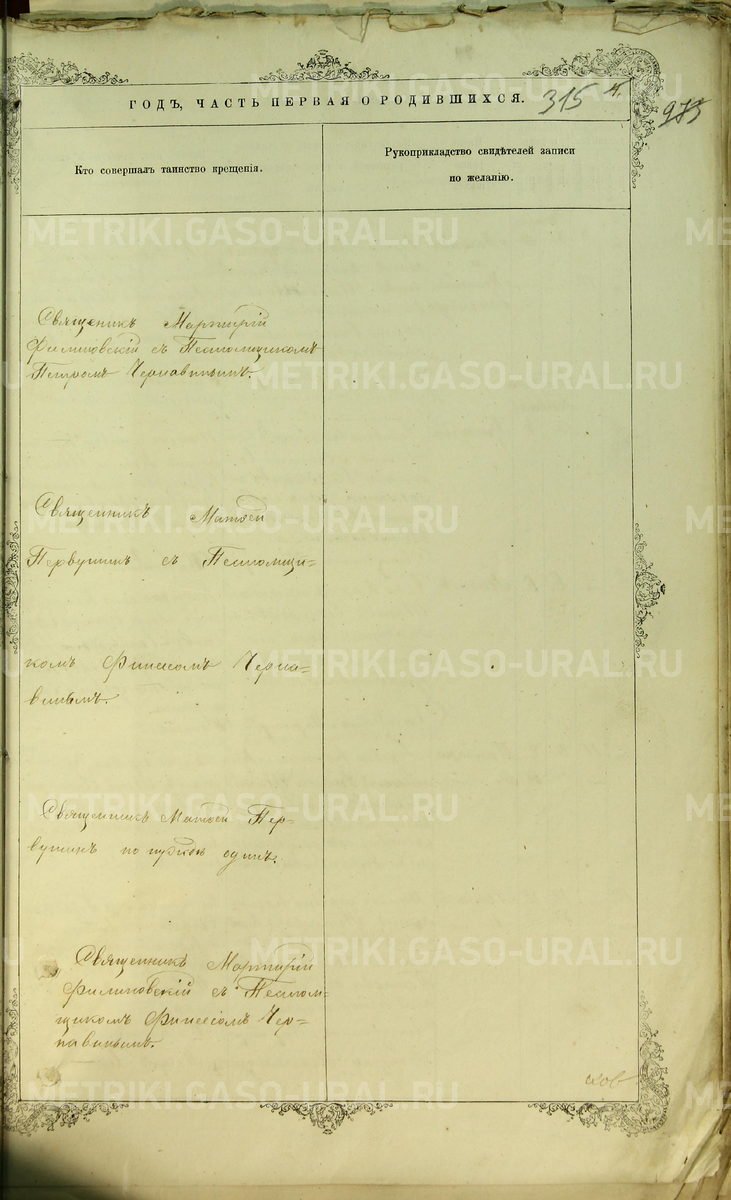 ГОДЪ, ЧАСТЬ ПЕРВАЯ О РОДИВШИХСЯ. 315
975
Кто совершалъ таинство крещенія.
Рукоприкладство свидѣтелей записи
по желанію.
Священикъ Мартирій
Филиповскій съ Псаломщикомъ
Петромъ Чернавинымъ.
Священникъ Матѳей
Первушинъ съ Псаломщи=
комъ Финеесомъ Черна=
винымъ.
Священникъ Матѳей Пер=
вушинъ по нуждѣ одинъ.
Священникъ Мартирій
Филиповскій съ Псалом=
щикомъ Финеесомъ Чер=
навинымъ.
METRIKI.GASO-URAL.RU